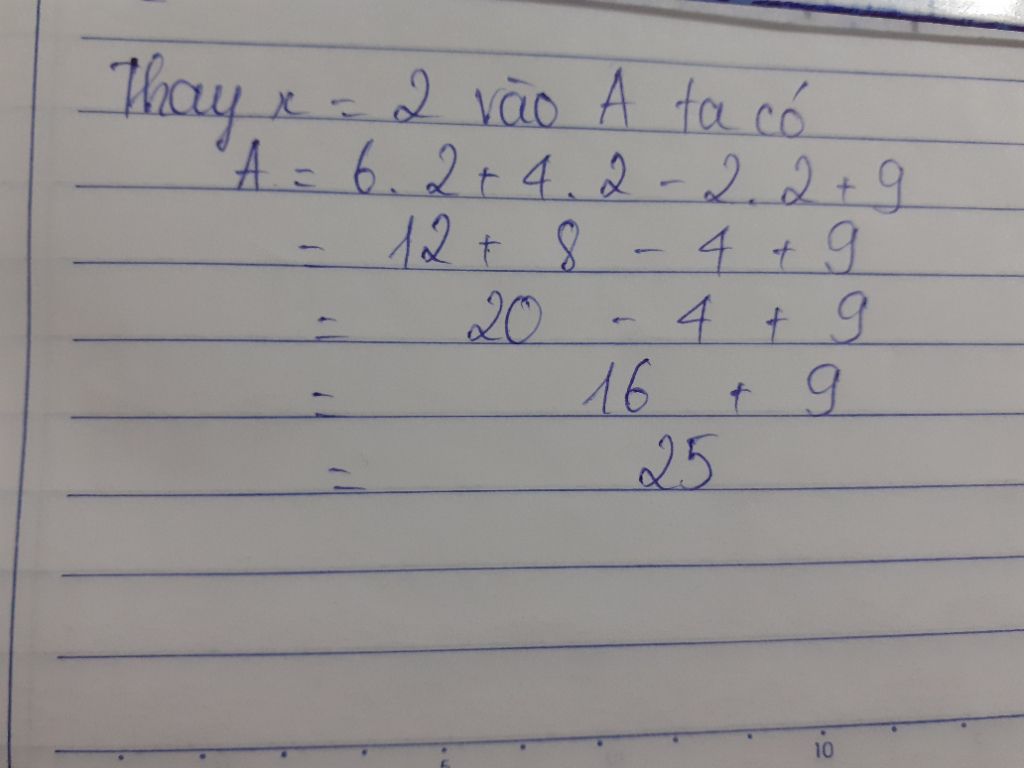 Thay x = 2 vào A ta có
A = 6. 2 + 4. 2 - 2. 2 + 9
= 12 + 8 - 4 + 9
= 20 - 4 + 9
= 16 + 9
= 25
10